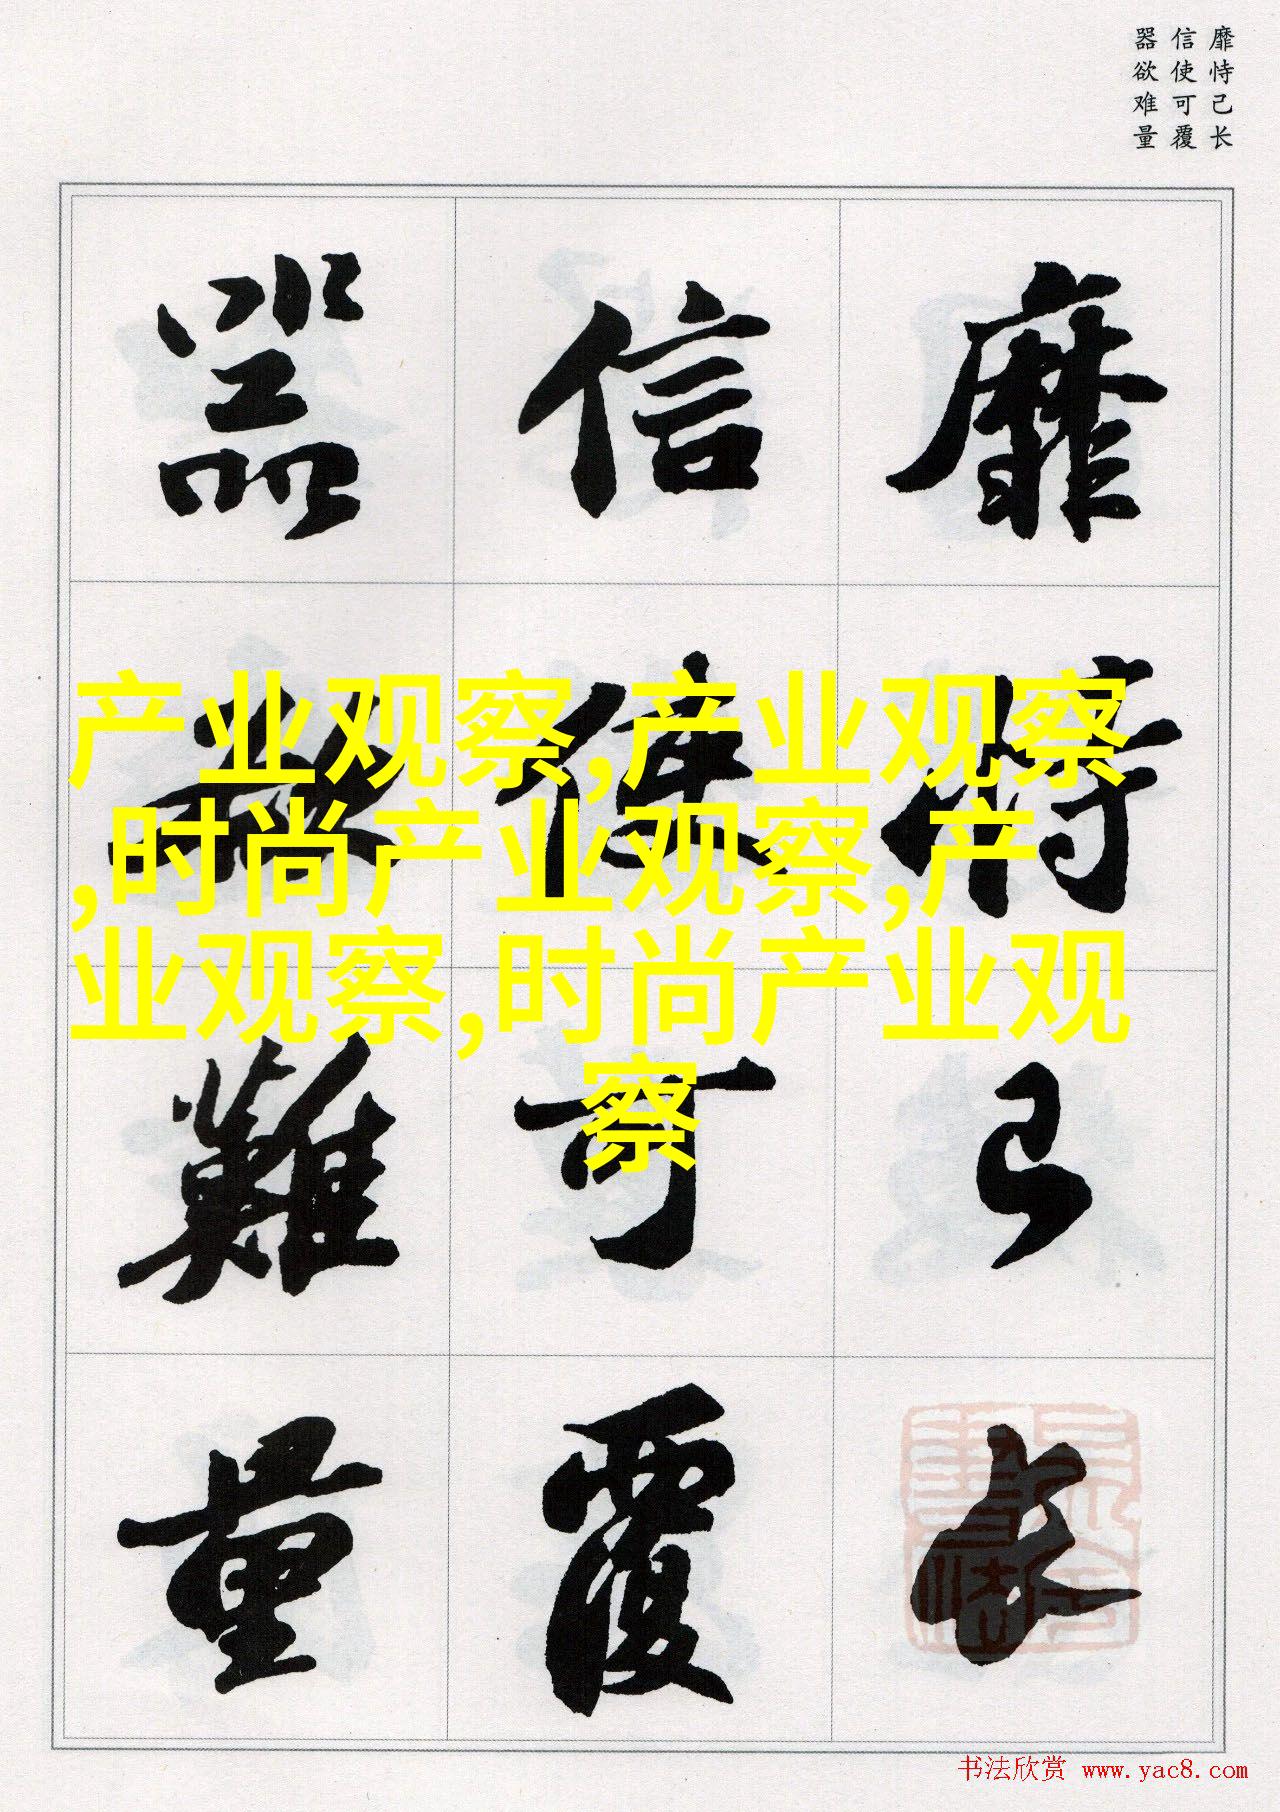 靡恃己长
信使可覆
器欲难量
靡恃己长
信使可覆
器欲難量
产业观察,产业观察
,时尚产业观察,产
业观察,时尚产业观
察
书法欣赏 www.yac8.com